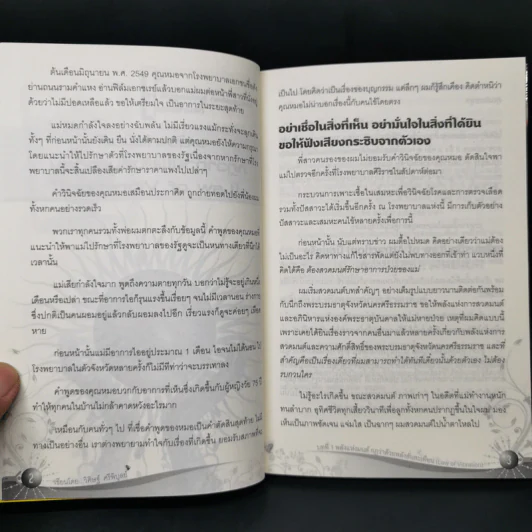 ต้นเดือนมิถุนายน พ.ศ. 2549 คุณหมอจากโรงพยาบาลเอกชนชื่อดัง
ย่านถนนรามคำแหง อ่านฟิล์มเอกซเรย์แล้วบอกแม่ผมต่อหน้าพี่สาว
ด้วยว่าไม่มีปอดเหลือแล้ว ขอให้เตรียมใจ เป็นอาการในระยะสุดท้าย
แม่หมดกำลังใจลงอย่างฉับพลัน ไม่มีเรี่ยวแรงแม้กระทั่งจะลุกเดิน
ทั้งๆ ที่ก่อนหน้านั้นยังเดิน ยืน นั่งได้ตามปกติ แต่คุณหมอยังให้ความกรุณา
โดยแนะนำให้ไปรักษาตัวที่โรงพยาบาลของรัฐเนื่องจากหากรักษาที่โรง
พยาบาลนี้จะสิ้นเปลืองเสียค่ารักษาราคาแพงไปเปล่าๆ
คำวินิจฉัยของคุณหมอเสมือนประกาศิต ถูกถ่ายทอดไปยังพี่น้อง
ทั้งหกคนอย่างรวดเร็ว
พวกเราทุกคนรวมทั้งพ่อผมตกตะลึงกับข้อมูลนี้ คำพูดของคุณหมอที่
แนะนำให้พาแม่ไปรักษาที่โรงพยาบาลของรัฐดูจะเป็นหนทางเดียวที่
เวลานั้น
แม่เสียกำลังใจมาก พูดถึงความตายทุกวัน บอกว่าไม่รู้จะอยู่กับ
เดือนหรือเปล่า ขณะที่อาการไอก็รุนแรงขึ้นเรื่อยๆ จนไม่มีเวลานอน ร่างกาย
ซึ่งปกติเป็นคนผอมอยู่แล้วกลับผอมลงไปอีก เรี่ยวแรงก็ดูจะค่อยๆ
หาย
ก่อนหน้านั้นแม่มีอาการไออยู่ประมาณ 1 เดือน ไอจนไม่ได้นอน ไป
โรงพยาบาลในตัวจังหวัดหลายครั้งก็ไม่มีทีท่าว่าจะบรรเทาลง
คำพูดของคุณหมอบวกกับอาการที่เห็นซึ่งเกิดขึ้นกับผู้หญิงวัย 75 ปี
ทำให้ทุกคนในบ้านไม่กล้าคาดหวังอะไรมาก
เหมือนกับคนทั่วๆ ไป ที่เชื่อคำพูดของหมอเป็นคำตัดสินสุดท้าย ไม่มี
ทางเป็นอย่างอื่น เราต่างพยายามทำใจกับเรื่องที่เกิดขึ้น ยอมรับสภาพที่จะ
เขียนโดย
เป็นไป โดยคิดว่าเป็นเรื่องของบุญกรรม แต่ลึกๆ ผมก็รู้สึกเคือง คิดตำหนิว่า
คุณหมอไม่น่าบอกเรื่องนี้กับคนไข้โดยตรง
อย่าเชื่อในสิ่งที่เห็น อย่ามั่นใจในสิ่งที่ได้ยิน
ขอให้ฟังเสียงกระซิบจากตัวเอง
พี่สาวคนรองของผมไม่ยอมรับคำวินิจฉัยของคุณหมอ ตัดสินใจพา
แม่ไปตรวจอีกครั้งที่โรงพยาบาลศิริราชในสัปดาห์ต่อมา
กระบวนการเพาะเชื้อในเสมหะเพื่อวินิจฉัยโรคและการตรวจเลือด
รวมทั้งปัสสาวะได้เริ่มขึ้นอีกครั้ง ณ โรงพยาบาลแห่งนี้ มีการเก็บตัวอย่าง
ปัสสาวะและเสมหะคนไข้หลายครั้งเพื่อการนี้
ก่อนหน้านั้น นับแต่ทราบข่าว ผมตื้อไปหมด คิดอย่างเดียวว่าแม่ต้อง
ไม่เป็นอะไร คิดหาทางแก้ไขสารพัดแต่ยังไม่พบทางออกที่เข้าท่า แวบหนึ่งที่
คิดได้คือ ต้องสวดมนต์รักษาอาการป่วยของแม่
ผมเริ่มสวดมนต์บทสำคัญๆ อย่างเต็มรูปแบบยาวนานติดต่อกันพร้อม
กับนึกถึงพระบรมธาตุจังหวัดนครศรีธรรมราช ขอให้พลังแห่งการสวดมนต์
และอภินิหารแห่งองค์พระธาตุบันดาลให้แม่หายป่วย เหตุที่ผมคิดแบบนี้
เพราะเคยได้ยินเรื่องราวจากคนอื่นมาแล้วหลายครั้งเกี่ยวกับพลังแห่งการ
สวดมนต์และความศักดิ์สิทธิ์ของพระบรมธาตุจังหวัดนครศรีธรรมราช และที่
สำคัญคือเป็นเรื่องเดียวที่ผมสามารถทำได้ทันทีเดี๋ยวนั้นด้วยตัวเอง ไม่ต้อง
รบกวนใคร
ไม่รู้อะไรเกิดขึ้น ขณะสวดมนต์ ภาพเก่าๆ ในอดีตที่แม่ทำงานหนัก
ทนลำบาก อุทิศชีวิตทุกเสี้ยววินาทีเพื่อลูกทั้งหกคนปรากฏขึ้นในใจผม มอง
เห็นเป็นภาพชัดเจน แจ่มใส เป็นฉากๆ ผมสวดมนต์ไปน้ำตาไหลไป